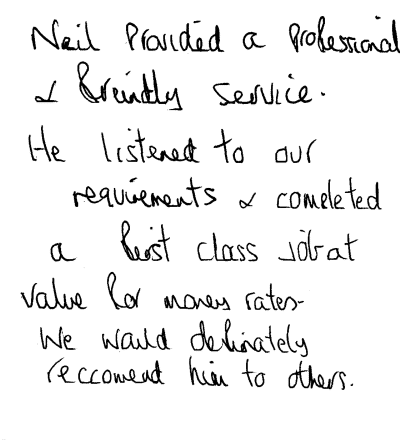 Neil Provided a Professional
& freindly service.
He listened to our
requirements & completed
a first class job at
value for money rates-
We would definately
reccomend him to others.